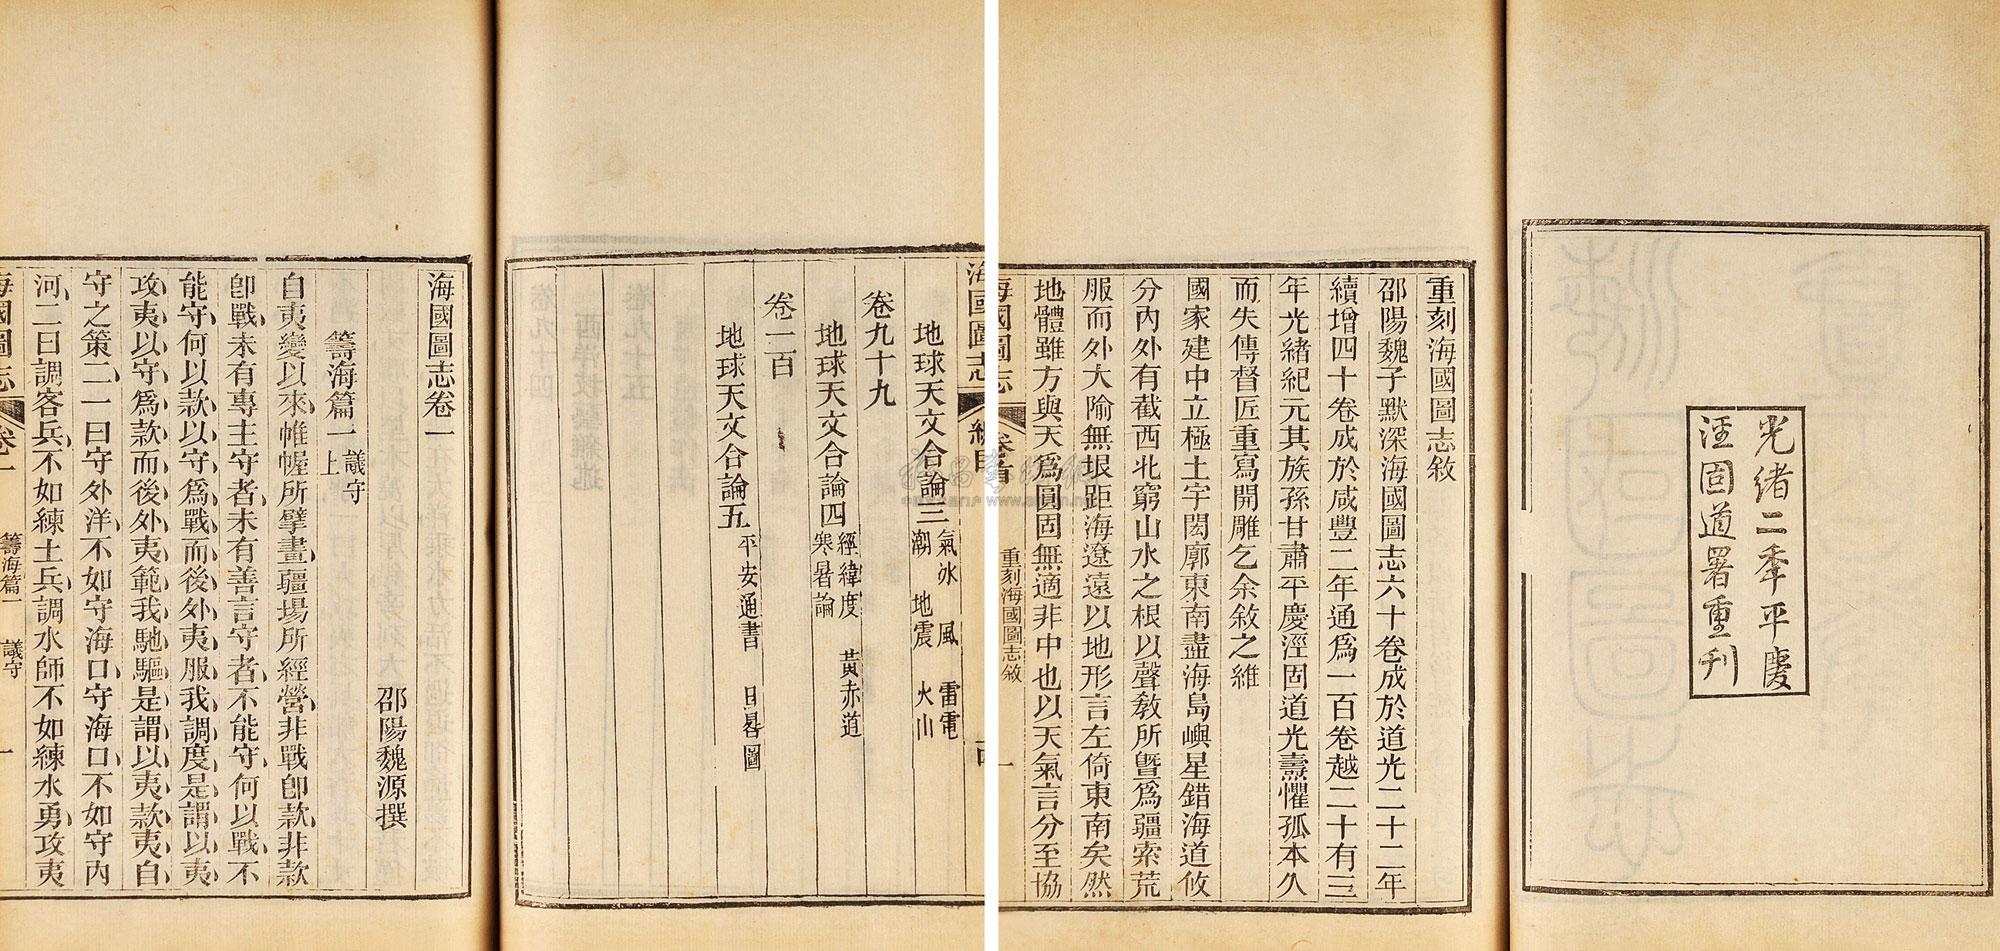 光緒二秊平慶
涇固道署重刊
重刻海國圖志敘
邵陽魏子默深海國圖志六十卷成於道光二十二年
續增四十卷成於咸豐二年通爲一百卷越二十有三
年光緒紀元其族孫甘肅平慶涇固道光燾懼孤本久
而失傳督匠重寫開雕乞余敘之維
國家建中立極土宇閎廓東南盡海島嶼星錯海道攸
分內外有截西北窮山水之根以聲敎所曁爲疆索荒
服而外大隃無垠距海遼遠以地形言左倚東南矣然
地體雖方與天爲圓固無適非中也以天氣言分至協
海國圖志
卷首
重刻海國圖志敘
一
海國圖志
總目
地球天文合論三
氣冰 風 雷電
潮 地震 火山
卷九十九
地球天文合論四
經緯度 黃赤道
寒暑論
卷一百
地球天文合論五
平安通書 日晷圖
海國圖志卷一
邵陽魏源撰
籌海篇一
議守
上
自夷變以來帷幄所擘畫疆場所經營非戰卽款非款
卽戰未有專主守者未有善言守者不能守何以戰不
能守何以款以守爲戰而後外夷服我調度是謂以夷
攻夷以守爲款而後外夷範我馳驅是謂以夷款夷自
守之策二一曰守外洋不如守海口守海口不如守內
河二曰調客兵不如練土兵調水師不如練水勇攻夷
海國圖志
卷一
籌海篇一
議守
一